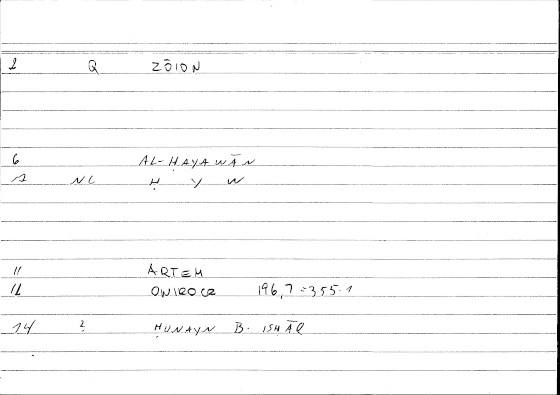 2 Q ZŌION
6 AL-ḤAYAWĀN
7 NL Ḥ Y W
11 ARTEM
12 ONIROCR 196,7 = 355.1
14 2 ḤUNAYN B. ISḤĀQ